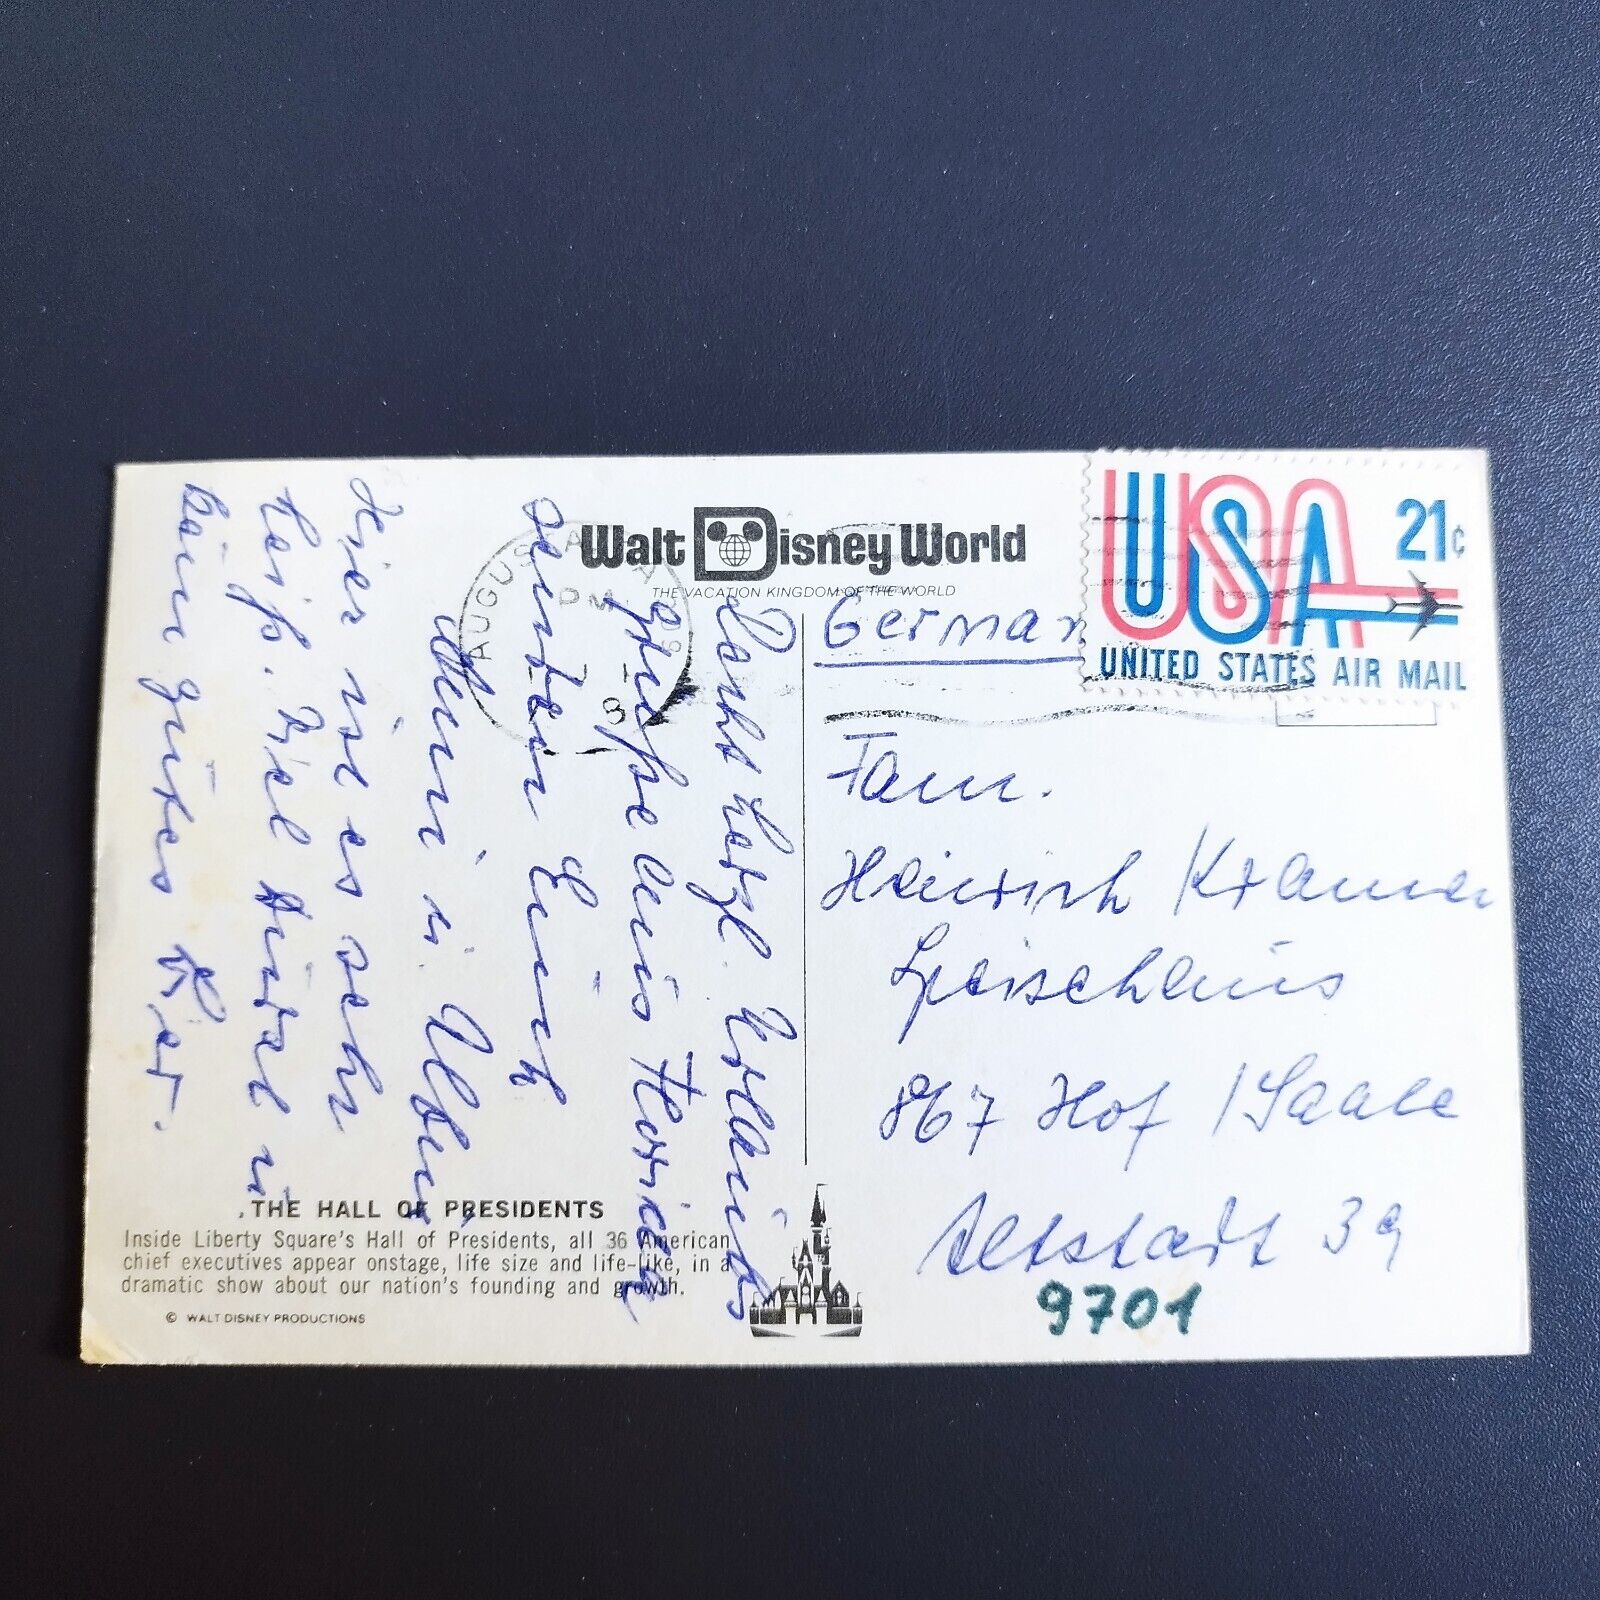 Walt Disney World
THE VACATION KINGDOM OF THE WORLD
USA 21c
UNITED STATES AIR MAIL
AUGUSTA
PM
German
Fam.
Heinrich Kramer
Speisehaus
867 Hof / Saale
Altstadt 39
9701
herzl. Urlaubs
grüße aus Florida
senden Euch
u. Alber
Hier ist es sehr
heiß. Viel Durst u.
kein gutes Bier.
THE HALL OF PRESIDENTS
Inside Liberty Square's Hall of Presidents, all 36 American
chief executives appear onstage, life size and life-like, in a
dramatic show about our nation's founding and growth.
© WALT DISNEY PRODUCTIONS